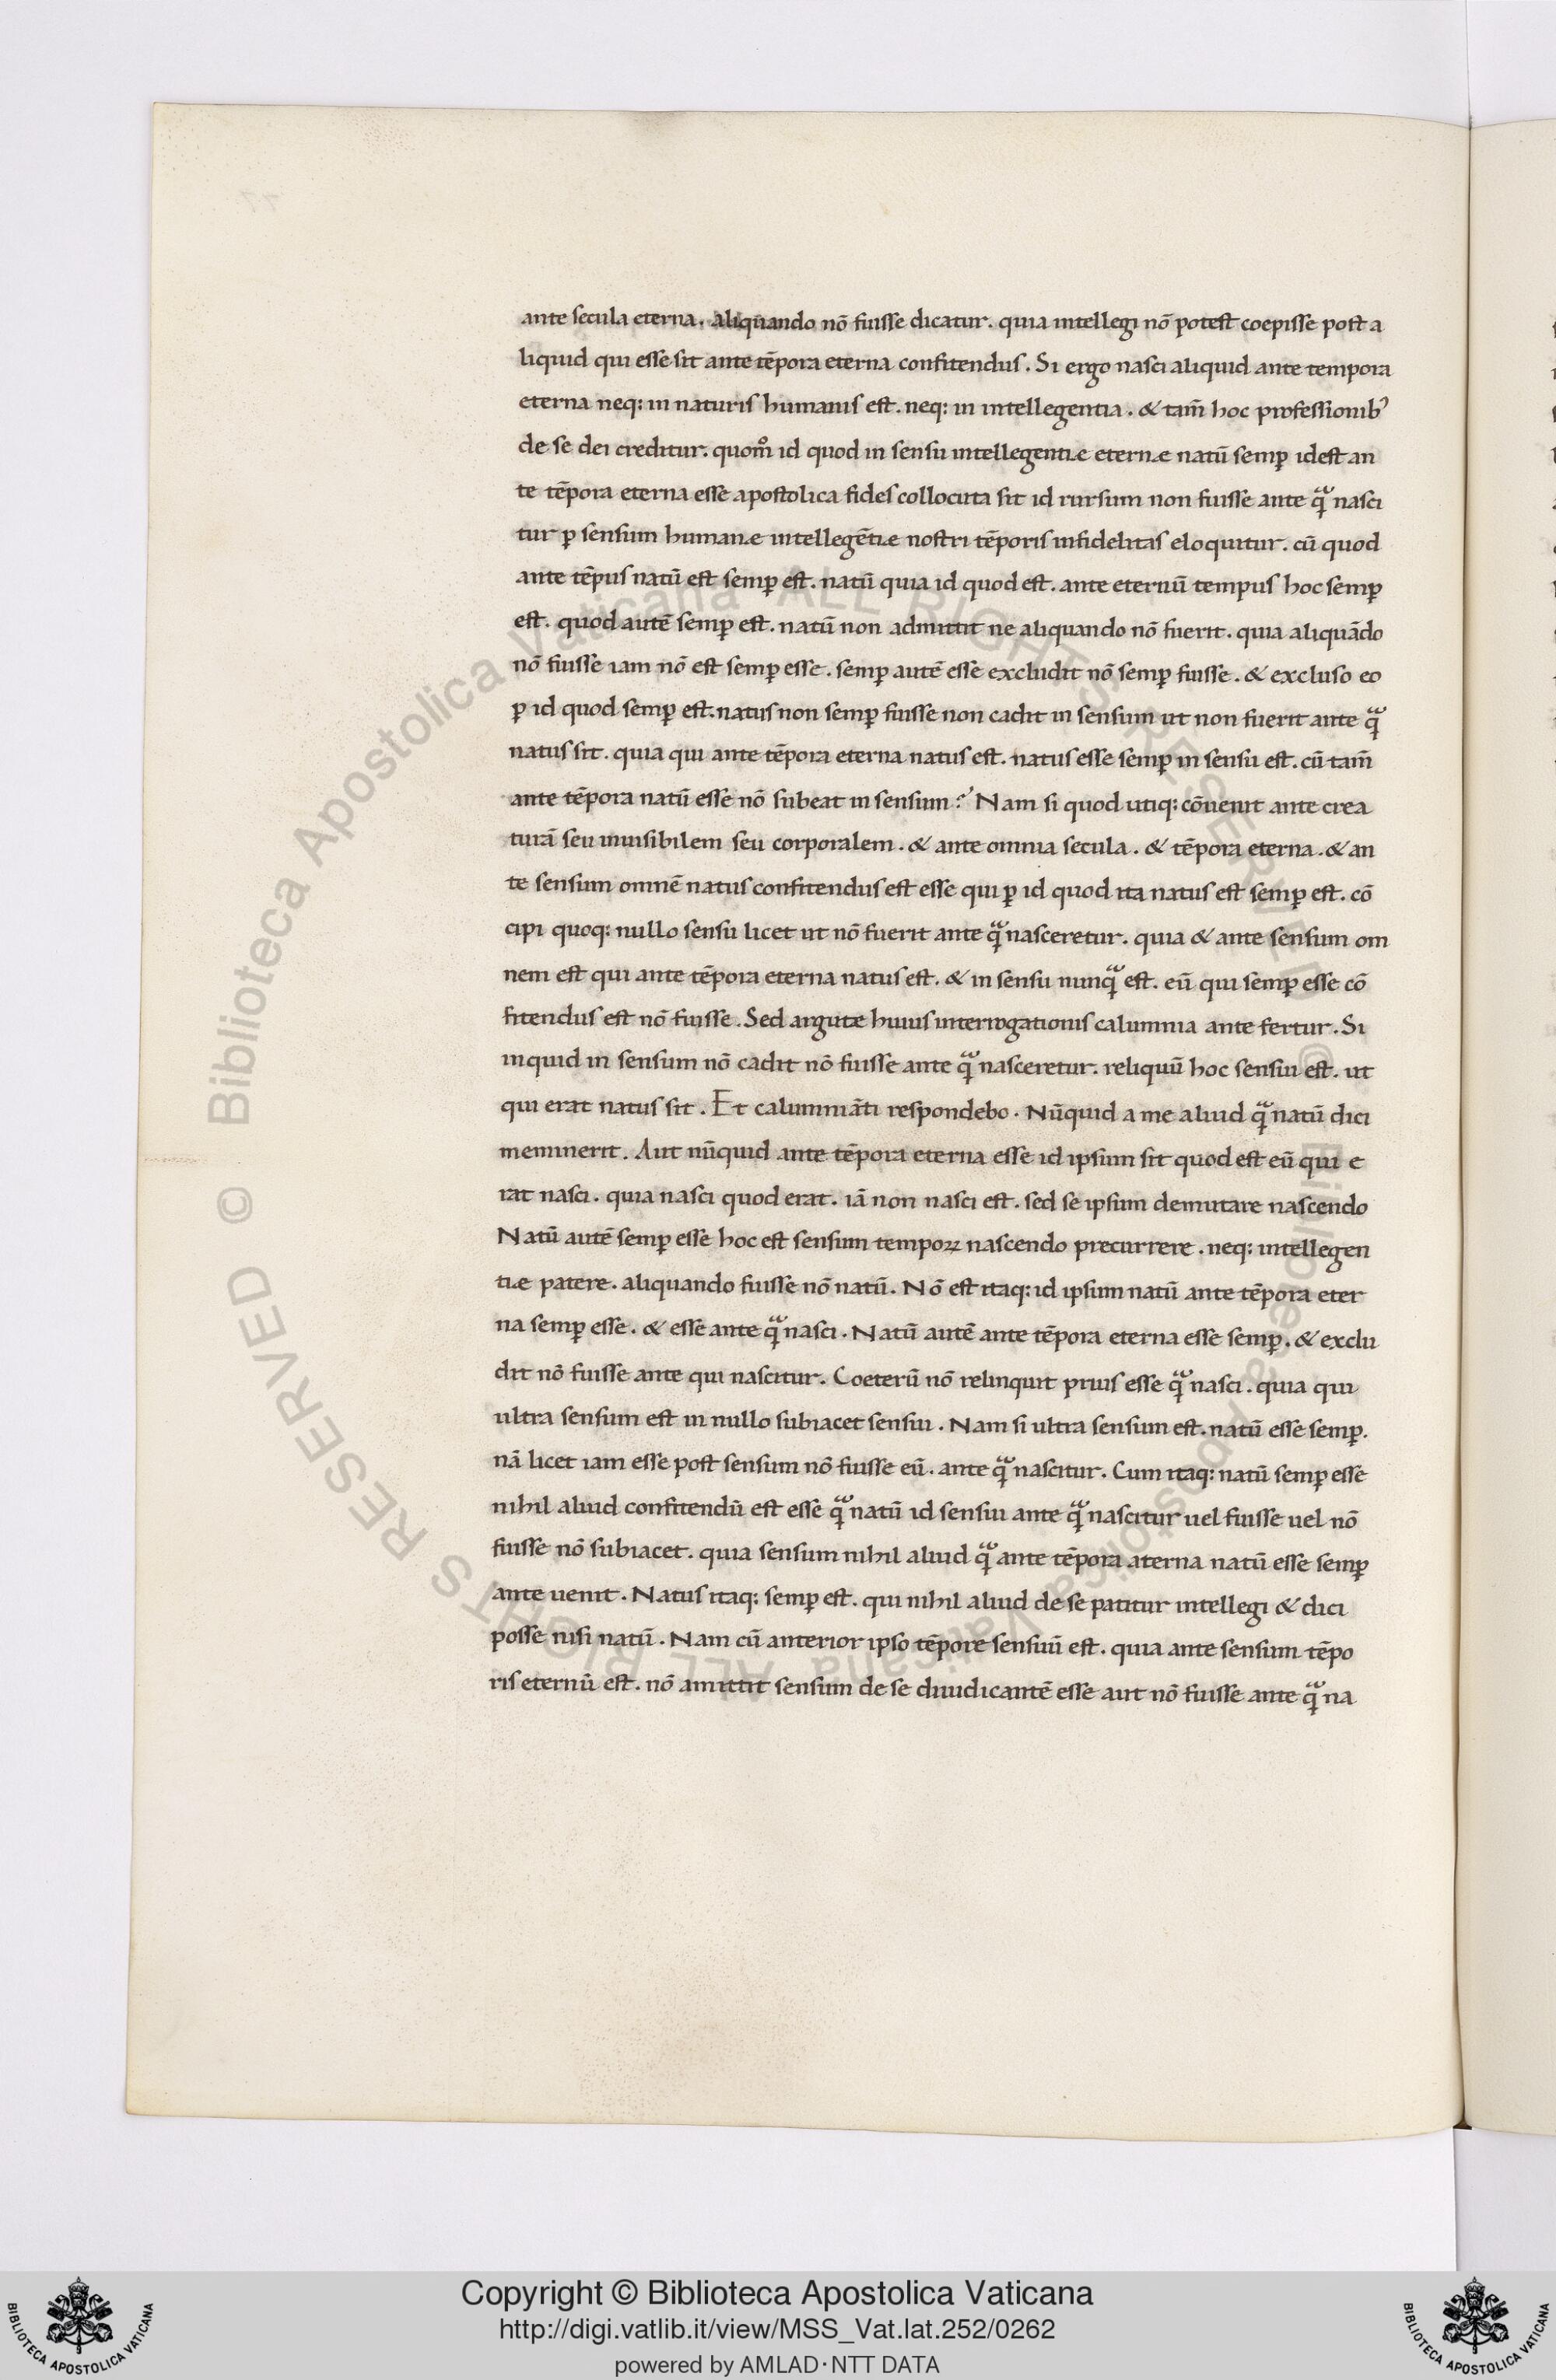 ante secula eterna. aliquando nō fuisse dicatur. quia intellegi nō potest coepisse post a
liquid qui esse sit ante tēpora eterna confitendus. Si ergo nasci aliquid ante tempora
eterna neq: in naturis humanis est. neq: in intellegentia. & tam̄ hoc professionibꝰ
de se dei creditur. quom̊ id quod in sensu intellegentiæ eternæ natū semꝑ idest an
te tēpora eterna esse apostolica fides collocuta sit id rursum non fuisse ante qᷓ nasci
tur ꝑ sensum humanæ intellegētiæ nostri tēporis infidelitas eloquitur. cū quod
ante tēpus natū est semꝑ est. natū quia id quod est. ante eternū tempus hoc semꝑ
est. quod autē semꝑ est. natū non admittit ne aliquando nō fuerit. quia aliquādo
nō fuisse iam nō est semꝑ esse. semꝑ autē esse excludit nō semꝑ fuisse. & excluso eo
ꝑ id quod semꝑ est. natus non semꝑ fuisse non cadit in sensum ut non fuerit ante qᷓ
natus sit. quia qui ante tēpora eterna natus est. natus esse semꝑ in sensu est. cū tam̄
ante tēpora natū esse nō subeat in sensum? Nam si quod utiq: cōuenit ante crea
turā seu inuisibilem seu corporalem. & ante omnia secula. & tēpora eterna. & an
te sensum omnē natus confitendus est esse qui ꝑ id quod ita natus est semꝑ est. cō
cipi quoq: nullo sensu licet ut nō fuerit ante qᷓ nasceretur. quia & ante sensum om
nem est qui ante tēpora eterna natus est. & in sensu nunqᷓ est. eū qui semꝑ esse cō
fitendus est nō fuisse. Sed argutæ huius interrogationis calumnia ante fertur. Si
inquid in sensum nō cadit nō fuisse ante qᷓ nasceretur. reliquū hoc sensui est. ut
qui erat natus sit. Et calumniāti respondebo. Nūquid a me aliud qᷓ natū dici
meminerit. Aut nūquid ante tēpora eterna esse id ipsum sit quod est eū qui e
rat nasci. quia nasci quod erat. iā non nasci est. sed se ipsum demutare nascendo
Natū autē semꝑ esse hoc est sensum tempoꝝ nascendo precurrere. neq: intellegen
tiæ patere. aliquando fuisse nō natū. Nō est itaq: id ipsum natū ante tēpora eter
na semꝑ esse. & esse ante qᷓ nasci. Natū autē ante tēpora eterna esse semꝑ. & exclu
dit nō fuisse ante qui nascitur. Coeterū nō relinquit prius esse qᷓ nasci. quia qui
ultra sensum est in nullo subiacet sensui. Nam si ultra sensum est. natū esse semꝑ.
nā licet iam esse post sensum nō fuisse eū. ante qᷓ nascitur. Cum itaq: natū semꝑ esse
nihil aliud confitendū est esse qᷓ natū id sensui ante qᷓ nascitur uel fuisse uel nō
fuisse nō subiacet. quia sensum nihil aliud qᷓ ante tēpora aterna natū esse semꝑ
ante uenit. Natus itaq: semꝑ est. qui nihil aliud de se patitur intellegi & dici
posse nisi natū. Nam cū anterior ipso tēpore sensuū est. quia ante sensum tēpo
ris eternū est. nō amittit sensum de se diuudicantē esse aut nō fuisse ante qᷓ na
© Biblioteca Apostolica Vaticana ALL RIGHTS RESERVED
© Biblioteca Apostolica Vaticana ALL RIGHTS RESERVED
BIBLIOTECA APOSTOLICA VATICANA
Copyright © Biblioteca Apostolica Vaticana
http://digi.vatlib.it/view/MSS_Vat.lat.252/0262
powered by AMLAD·NTT DATA
BIBLIOTECA APOSTOLICA VATICANA